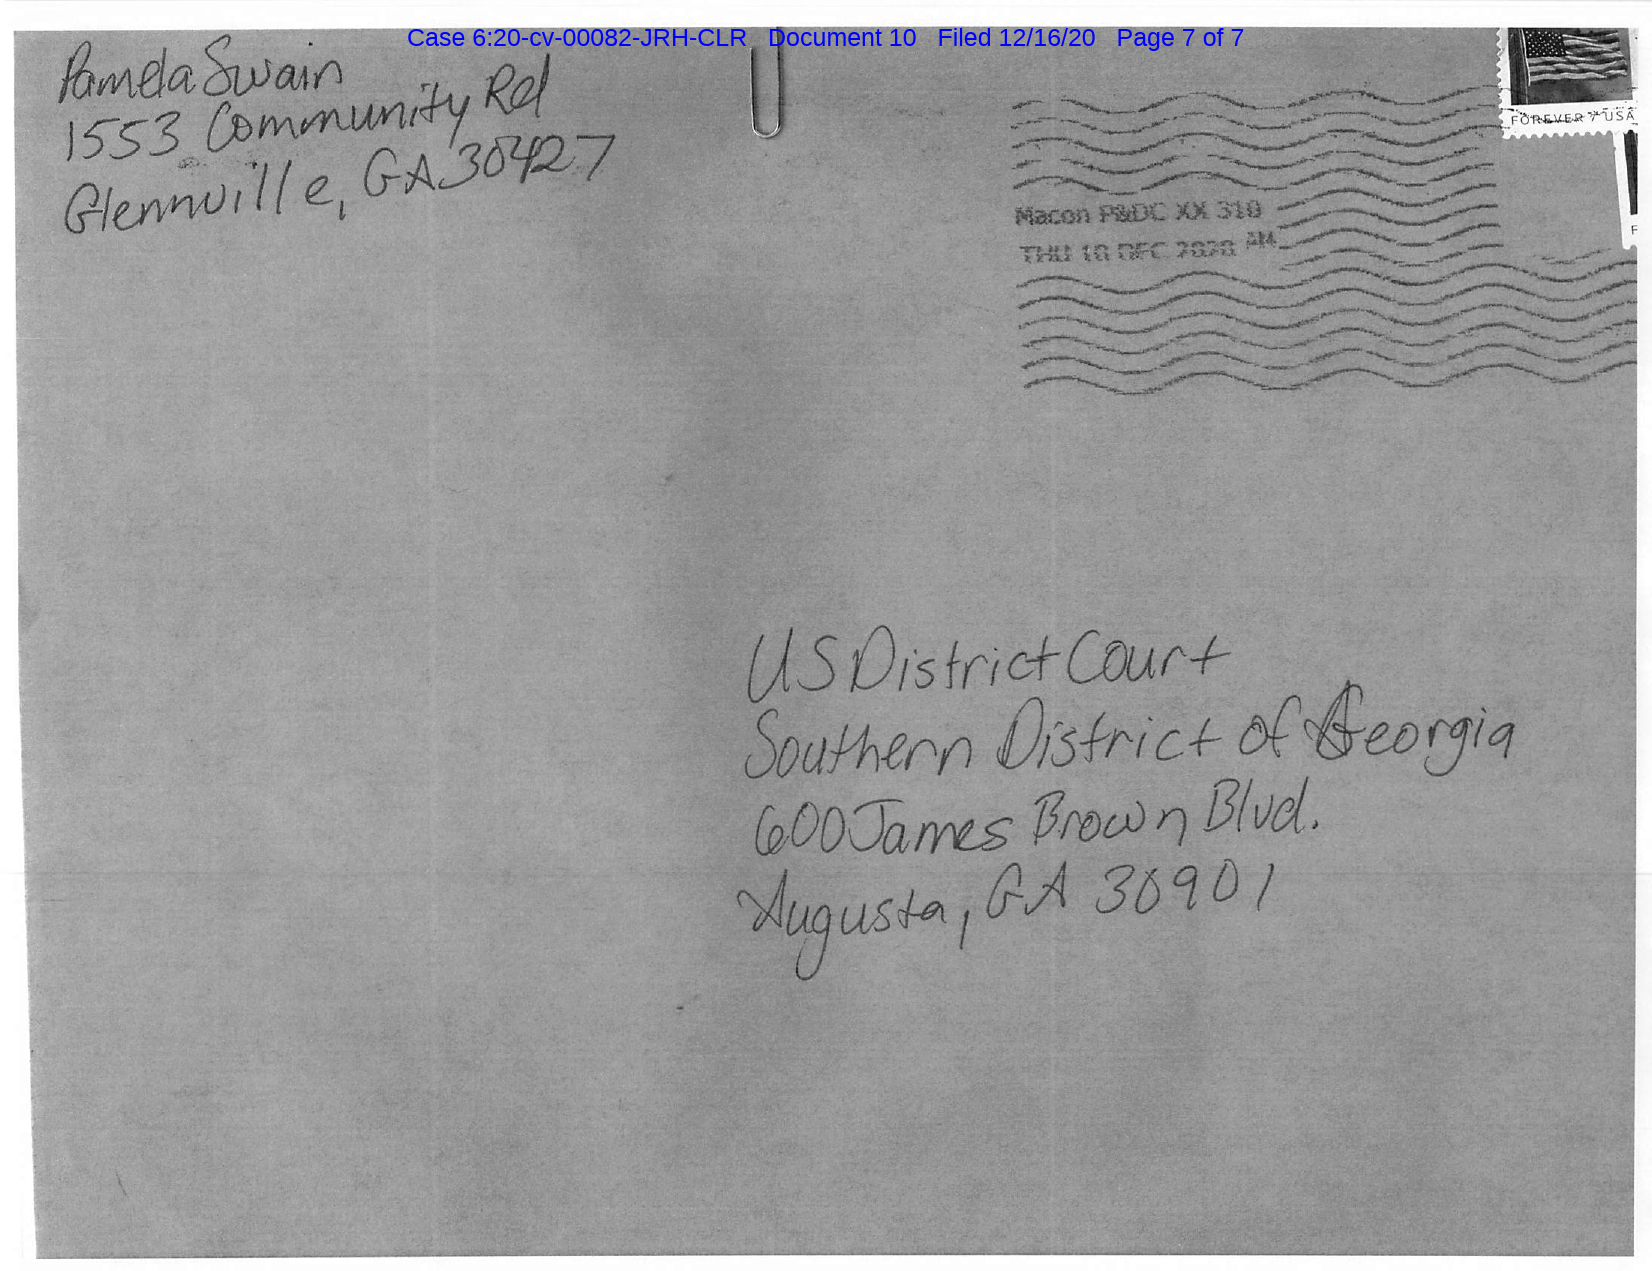 Case 6:20-cv-00082-JRH-CLR Document 10 Filed 12/16/20 Page 7 of 7
Pamela Swain
1553 Community Rd
Glennville, GA 30427
FOREVER / USA
Macon P&DC XX 310
THU 10 DEC 2020 AM
F
US District Court
Southern District of Georgia
600 James Brown Blvd.
Augusta, GA 30901